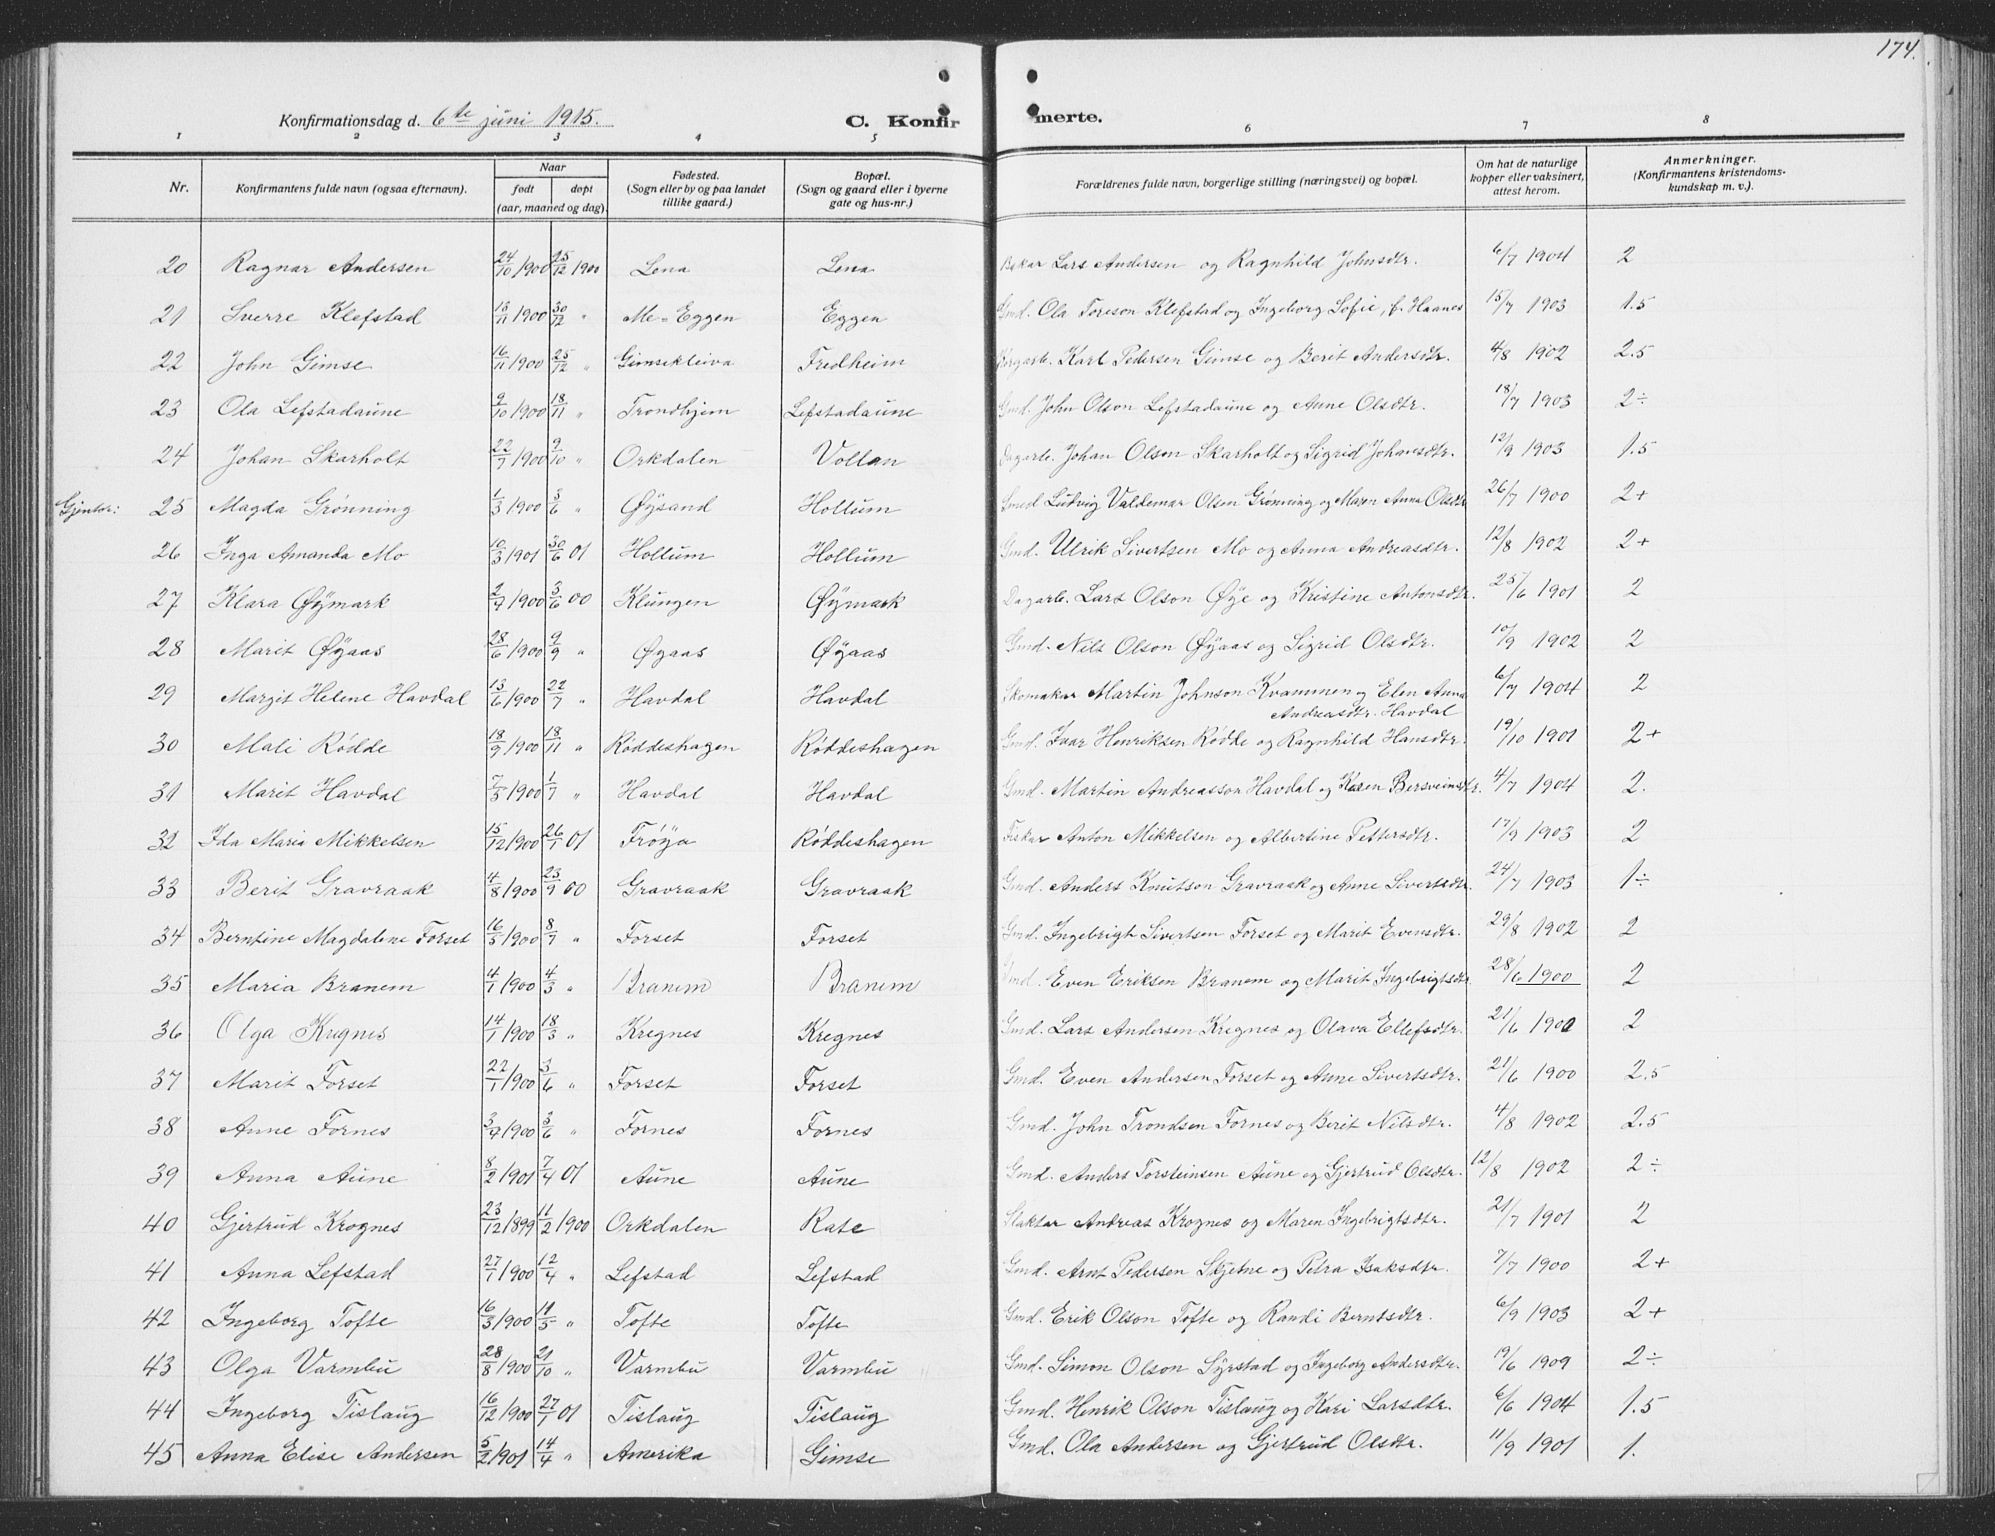 174.
Konfirmationsdag d. 6te juni 1915. C. Konfirmerte.
1 2 3 4 5 6 7 8
Nr. Konfirmantens fulde navn (ogsaa efternavn). Naar født døpt (aar, maaned og dag). Fødested. (Sogn eller by og paa landet tillike gaard.) Bopæl. (Sogn og gaard eller i byerne gate og hus-nr.) Forældrenes fulde navn, borgerlige stilling (næringsvei) og bopæl. Om hat de naturlige kopper eller vaksinert, attest herom. Anmerkninger. (Konfirmantens kristendoms- kundskap m. v.).
20 Ragnar Andersen 24/10 1900 25/12 1900 Lena Lena Bakar Lars Andersen og Ragnhild Johnsdtr. 6/7 1904 2
21 Sverre Klefstad 13/11 1900 30/12 " Me-Eggen Eggen Gmd. Ola Toreson Klefstad og Ingeborg Sofie, f. Haanes 15/7 1903 1.5
22 John Gimse 16/11 1900 25/12 " Gimsekleiva Fredheim Karl Pedersen Gimse og Berit Andersdtr. 4/8 1902 2.5
23 Ola Lefstadaune 9/10 1900 18/11 " Trondhjem Lefstadaune Gmd. John Olson Lefstadaune og Anne Olsdtr. 18/7 1903 2÷
24 Johan Skarholt 22/7 1900 9/10 " Orkdalen Vollan Dagarb. Johan Olsen Skarholt og Sigrid Johansdtr. 12/9 1903 1.5
Gjentor: 25 Magda Grønning 1/3 1900 3/6 " Øysand Hollum Smed Ludvig Valdemar Olsen Grønning og Maren Anna Olsdtr 26/7 1900 2+
26 Inga Amanda Mo 10/3 1901 30/6 01 Hollum Hollum Gmd. Ulrik Sivertsen Mo og Anna Andreasdtr. 12/8 1902 2+
27 Klara Øymark 2/4 1900 3/6 00 Klungen Øymark Dagarb. Lars Olson Øye og Kristine Antonsdtr. 25/6 1901 2
28 Marit Øyaas 28/6 1900 9/9 " Øyaas Øyaas Gmd. Nils Olson Øyaas og Sigrid Olsdtr. 10/9 1902 2
29 Margit Helene Havdal 13/6 1900 22/7 " Havdal Havdal Skomakar Martin Johnson Kvammen og Elen Anna Andreasdtr. Havdal 6/7 1904 2
30 Mali Rødde 18/9 1900 18/11 " Røddeshagen Røddeshagen Gmd. Ivar Henriksen Rødde og Ragnhild Hansdtr. 19/10 1901 2+
31 Marit Havdal 7/5 1900 1/7 " Havdal Havdal Gmd. Martin Andreasson Havdal og Karen Bersveinsdtr. 4/7 1904 2.
32 Ida Maria Mikkelsen 15/12 1900 26/1 01 Frøya Røddeshagen Fiskar Anton Mikkelsen og Albertine Pettersdtr. 17/9 1903 2
33 Berit Gravraak 4/8 1900 23/9 00 Gravraak Gravraak Gmd. Anders Knutson Gravraak og Anne Sivertsdtr. 24/7 1903 1÷
34 Berntine Magdalene Forset 16/5 1900 8/7 " Forset Forset Gmd. Ingebrigt Sivertsen Forset og Marit Evensdtr. 29/8 1902 2
35 Maria Branem 4/1 1900 4/3 " Branem Branem Gmd. Even Eriksen Branem og Marit Ingebrigtsdtr. 28/6 1900 2
36 Olga Kregnes 14/1 1900 18/3 " Kregnes Kregnes Gmd. Lars Andersen Kregnes og Olava Ellefsdtr. 21/6 1900 2
37 Marit Forset 22/1 1900 3/6 " Forset Forset Gmd. Even Andersen Forset og Anne Sivertsdtr. 21/6 1900 2.5
38 Anne Fornes 3/4 1900 3/6 " Fornes Fornes Gmd. John Trondsen Fornes og Berit Nilsdtr. 4/8 1902 2.5
39 Anna Aune 8/2 1901 7/4 01 Aune Aune Gmd. Anders Torsteinsen Aune og Gjertrud Olsdtr. 12/8 1902 2÷
40 Gjertrud Krognes 23/12 1899 11/2 1900 Orkdalen Rate Slaktar Andreas Krognes og Maren Ingebrigtsdtr. 21/7 1901 2
41 Anna Lefstad 27/1 1900 12/4 " Lefstad Lefstad Gmd. Arnt Pedersen Skjetne og Petra Isaksdtr. 7/7 1900 2+
42 Ingeborg Tofte 16/3 1900 11/5 " Tofte Tofte Gmd. Erik Olson Tofte og Randi Berntsdtr. 6/9 1903 2+
43 Olga Varmbu 28/8 1900 21/10 " Varmbu Varmbu Gmd. Simon Olson Syrstad og Ingeborg Andersdtr. 19/6 1909 2÷
44 Ingeborg Tislaug 16/12 1900 27/1 01 Tislaug Tislaug Gmd. Henrik Olson Tislaug og Kari Larsdtr. 6/6 1904 1.5
45 Anna Elise Andersen 5/2 1901 14/4 " Amerika Gimse Gmd. Ola Andersen og Gjertrud Olsdtr. 11/9 1901 1.